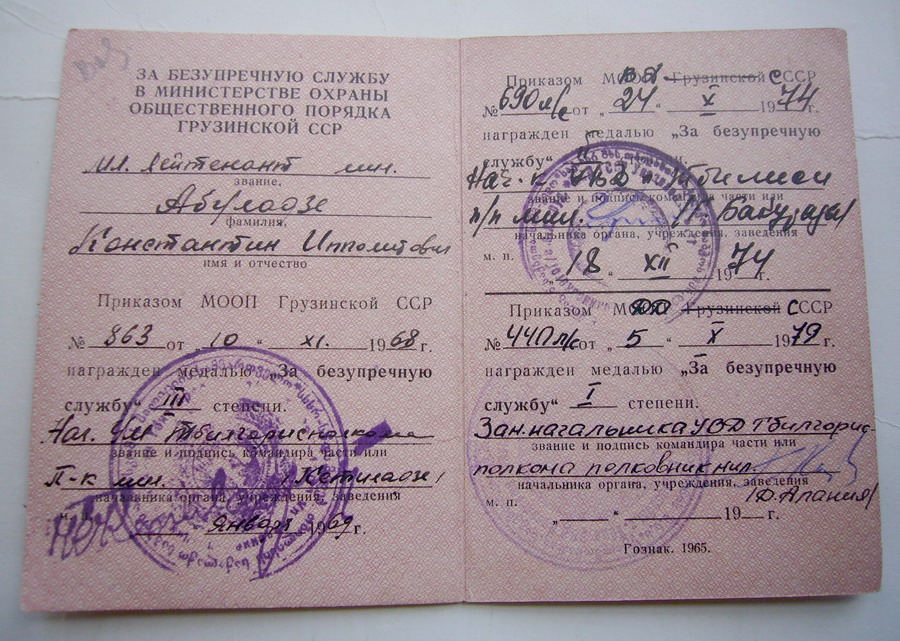 ЗА БЕЗУПРЕЧНУЮ СЛУЖБУ
В МИНИСТЕРСТВЕ ОХРАНЫ
ОБЩЕСТВЕННОГО ПОРЯДКА
ГРУЗИНСКОЙ ССР
мл. лейтенант мил.
звание,
Абуладзе
фамилия,
Константин Ипполитович
имя и отчество
Приказом МООП Грузинской ССР
№ 863 от „10“ XI. 1968 г.
награжден медалью „За безупречную
службу“ III степени.
Нач. УМ Тбилгорисполкома
звание и подпись командира части или
П-к мил. /Кетиладзе/
начальника органа, учреждения, заведения
января 1969 г.
Приказом МООП Грузинской ССР
№ 690 л/с от „24“ X 1974 г.
награжден медалью „За безупречную
службу“ II степени.
Нач-к УВД г. Тбилиси
звание и подпись командира части или
п/п мил.
начальника органа, учреждения, заведения
м. п. „18“ XII 1974 г.
Приказом Грузинской ССР
№ 440 л/с от „5“ X 1979 г.
награжден медалью „За безупречную
службу“ I степени.
Зам. начальника УОД Тбилгорис-
звание и подпись командира части или
полкома полковник мил.
начальника органа, учреждения, заведения
м. п. /Д. Алания/
„ “ 19 г.
Гознак. 1965.